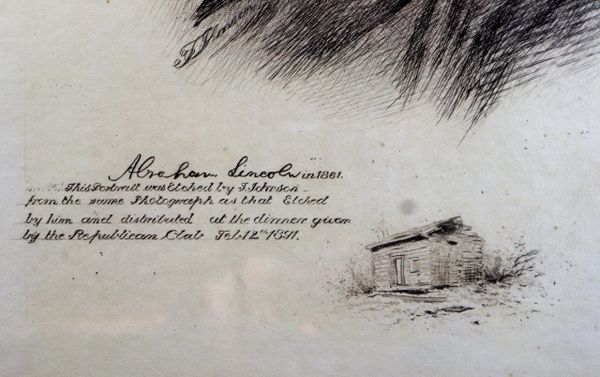 T. Johnson
Abraham Lincoln in 1861.
This Portrait was Etched by T. Johnson
from the same Photograph as that Etched
by him and distributed at the dinner given
by the Republican Club Feb. 12th 1891.